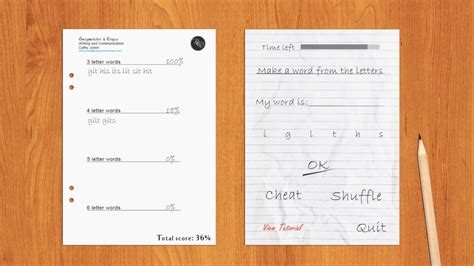 Writing and Communication
Cathy Jones
3 letter words 100%
git hic its lit sit hit
4 letter words 18%
gilt gits
5 letter words 0%
6 letter words 0%
Total score: 36%
Time left
Make a word from the letters
My word is:
i g l t h s
OK
Cheat Shuffle
View Tutorial Quit